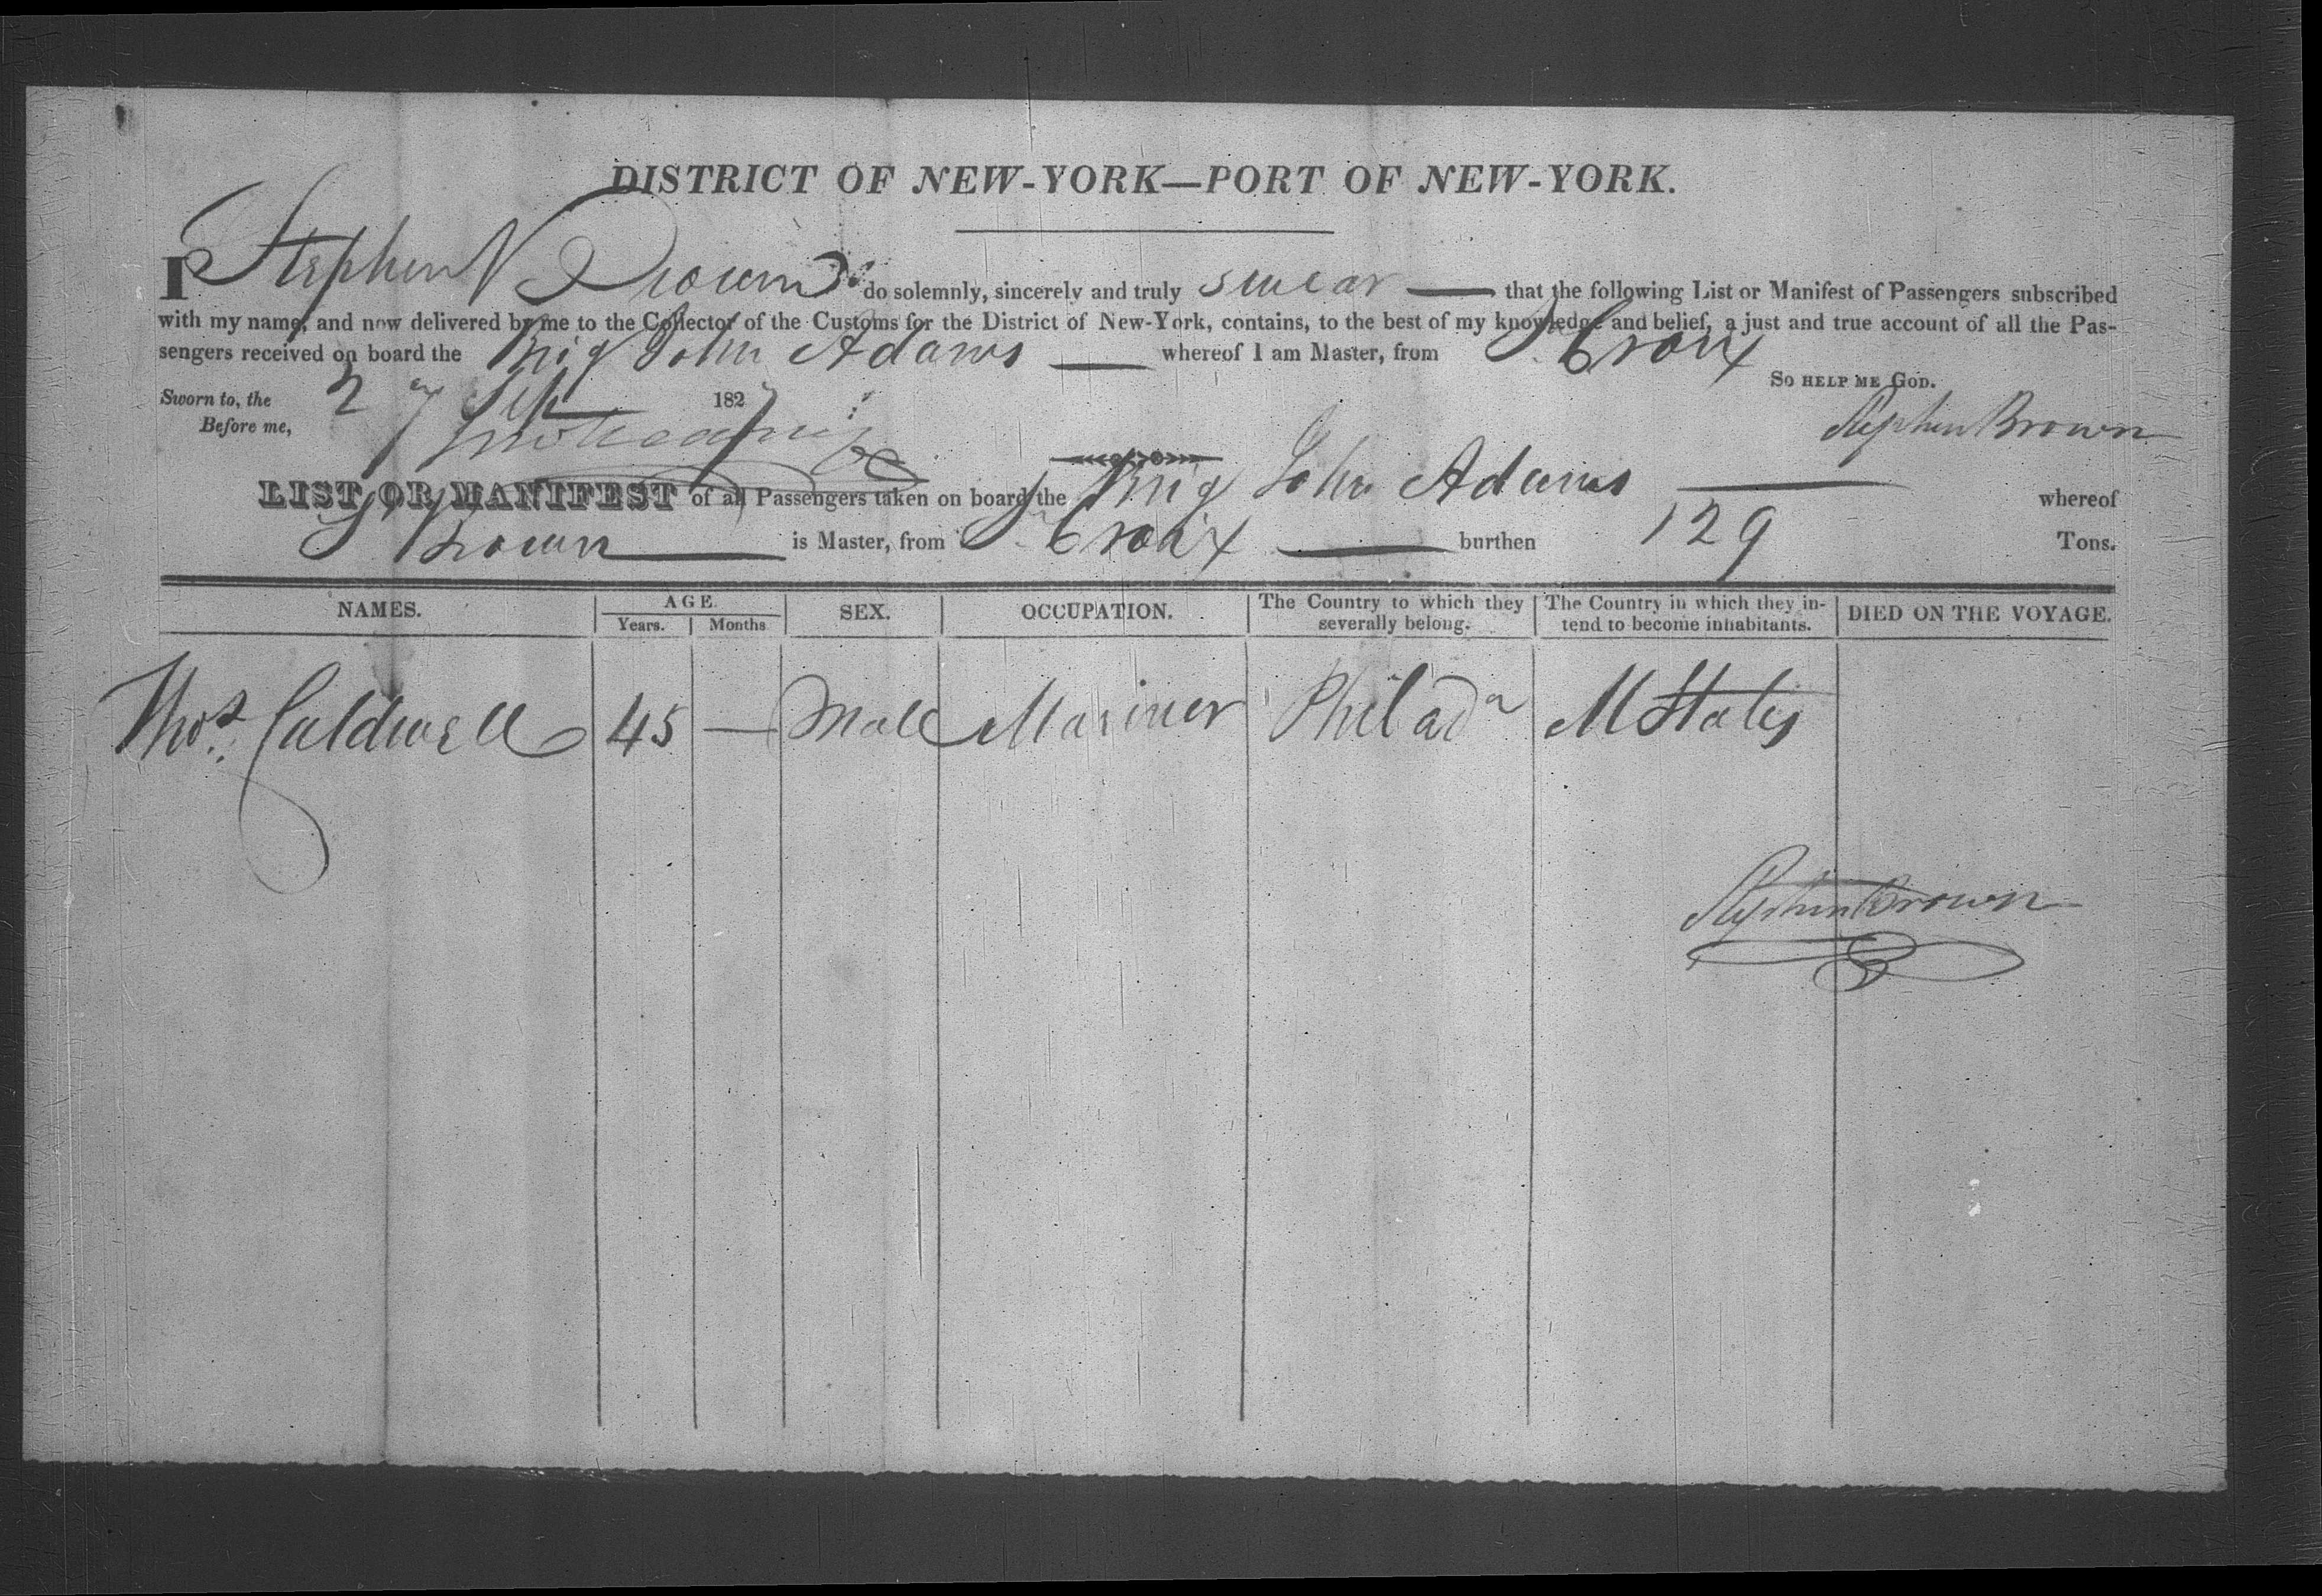 DISTRICT OF NEW-YORK—PORT OF NEW-YORK.
I Stephen Brown do solemnly, sincerely and truly swear — that the following List or Manifest of Passengers subscribed
with my name, and now delivered by me to the Collector of the Customs for the District of New-York, contains, to the best of my knowledge and belief, a just and true account of all the Pas-
sengers received on board the Brig John Adams — whereof I am Master, from St Croix
So HELP ME GOD.
Sworn to, the 27 Sep 1827
Before me,
Stephen Brown
LIST OR MANIFEST of all Passengers taken on board the Brig John Adams — whereof
S Brown — is Master, from St Croix — burthen 129 Tons.
NAMES. AGE. SEX. OCCUPATION. The Country to which they severally belong. The Country in which they in-tend to become inhabitants. DIED ON THE VOYAGE.
Years. Months
Thos. Caldwell 45 — Male Mariner Philada UStates
Stephen Brown